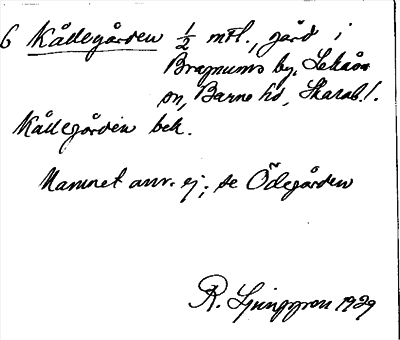 6 Kållegården ½ mtl., gård i
Bragnums by, Lekåsa
sn, Barne hd, Skarab. l.
Kållegården bek.
Namnet anv. ej; se Ödegården
R. Ljunggren 1929